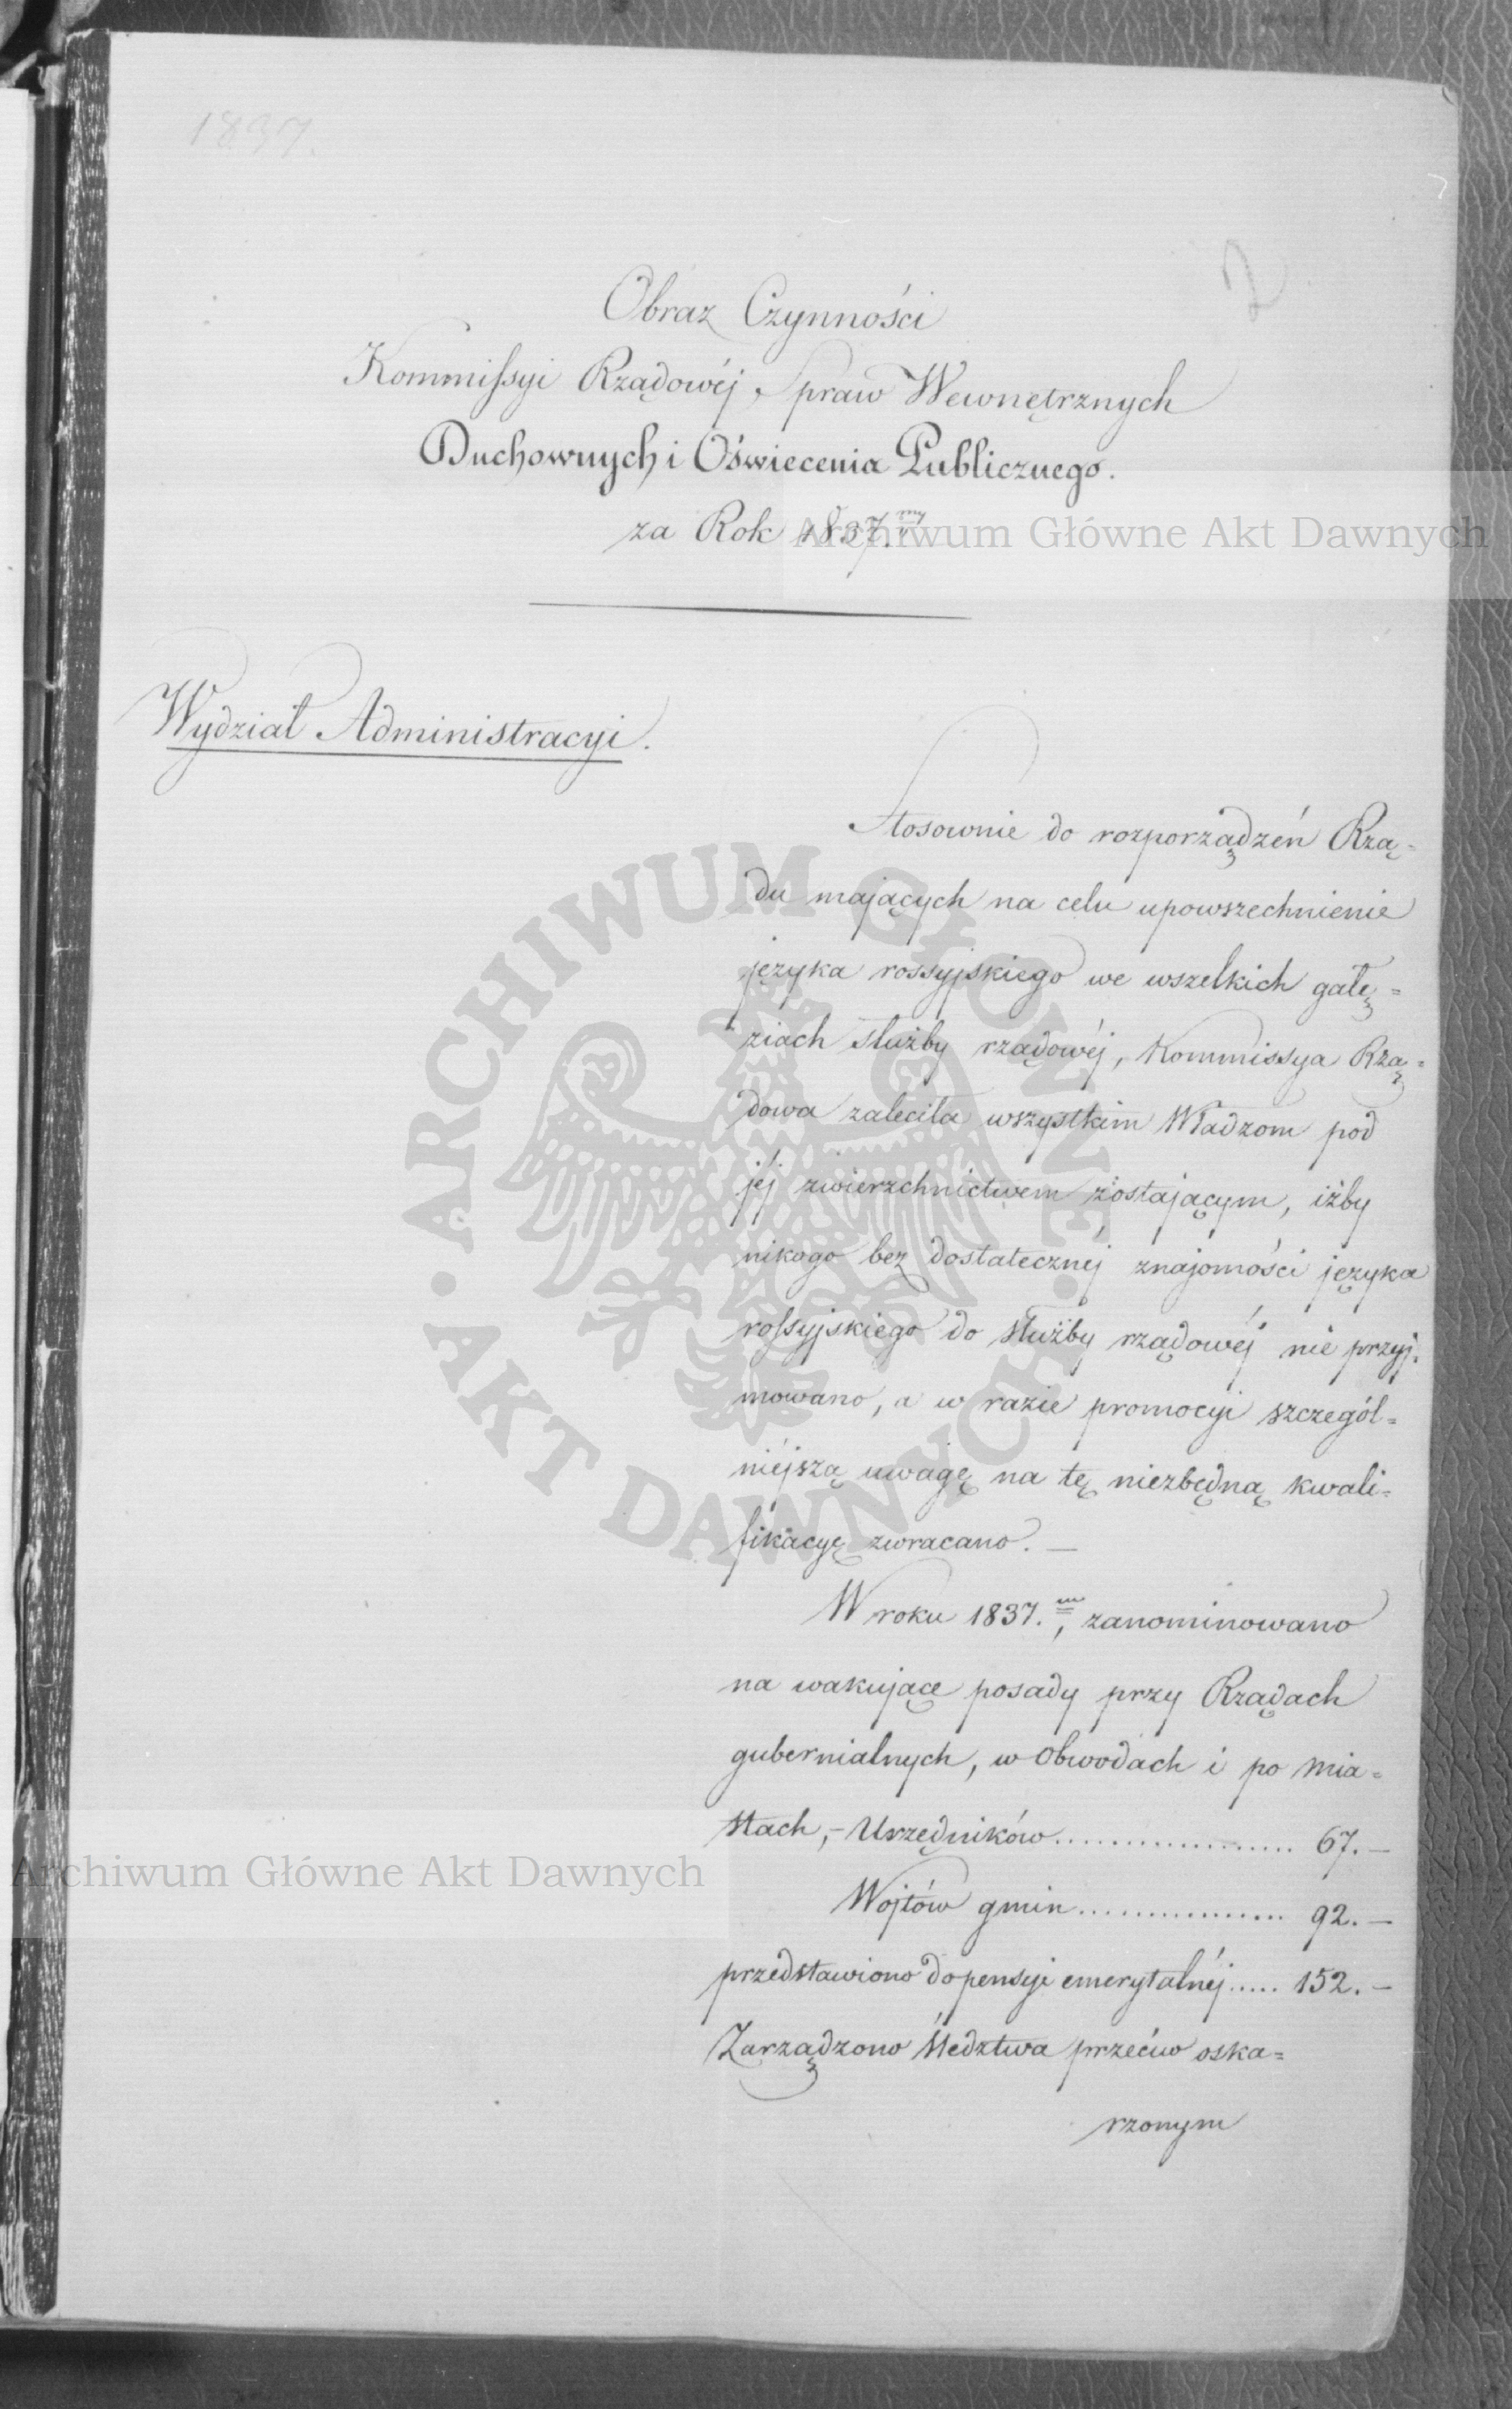 1837.
2
Obraz Czynności
Kommissyi Rządowéj Spraw Wewnętrznych
Duchownych i Oświecenia Publicznego.
za Rok 1837.my
Wydział Administracyi.
Stosownie do rozporządzeń Rzą=
du mających na celu upowszechnienie
języka rossyjskiego we wszelkich gałę=
ziach służby rządowéj, Kommissya Rzą=
dowa zaleciła wszystkim Władzom pod
jéj zwierzchnictwem zostającym, iżby
nikogo bez dostatecznéj znajomości języka
rossyjskiego do służby rządowéj nie przyj=
mowano, a w razie promocyi szczegól=
niéjszą uwagę na tę niezbędną kwali=
fikacyę zwracano. —
W roku 1837.m, zanominowano
na wakujące posady przy Rządach
gubernialnych, w Obwodach i po mia=
stach, – Urzędników................... 67. —
Wojtów gmin................. 92. —
przedstawiono do pensyi emerytalnéj..... 152. —
Zarządzono śledztwa przeciw oska=
rzonym
Archiwum Główne Akt Dawnych
ARCHIWUM GŁÓWNE
AKT DAWNYCH
Archiwum Główne Akt Dawnych